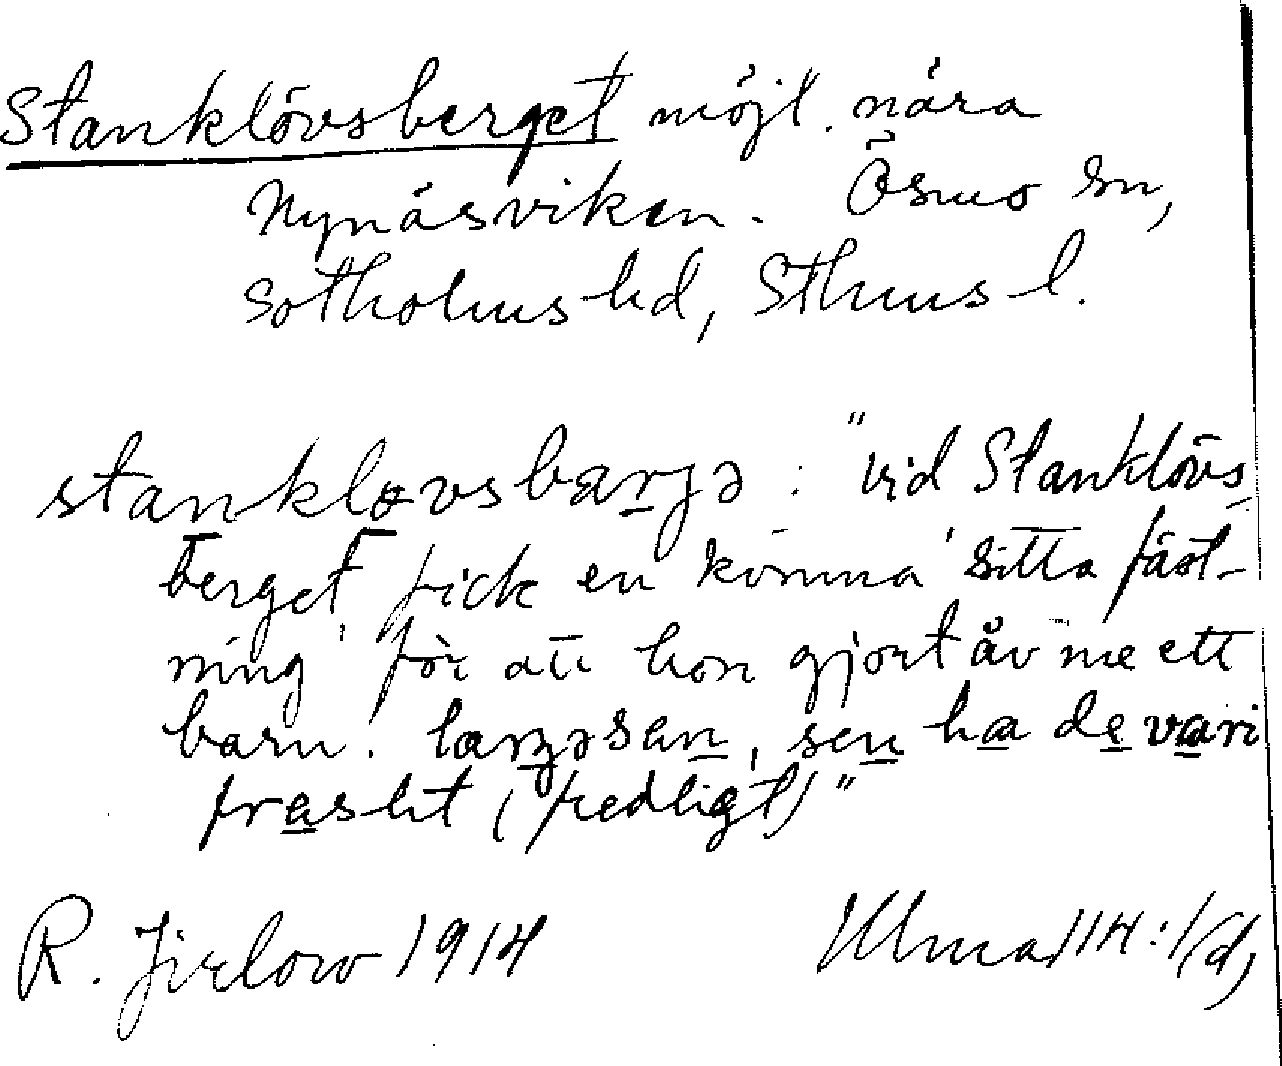 Stanklövsberget möjl. nära
Nynäsviken. Ösmo sn,
Sotholms hd, Sthms l.
stankløvsbærjə : "vid Stanklövs
berget fick en komma 'sitta fäst-
ning' för att hon gjort åv me ett
barn. læŋəsen, sen ha de vari
fraslit (fredligt)"
R. Jirlow 1914
Ulma 114:1(d)